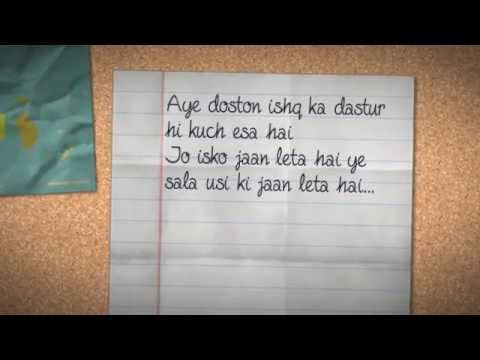 Aye doston ishq ka dastur
hi kuch esa hai
Jo isko jaan leta hai ye
sala usi ki jaan leta hai...